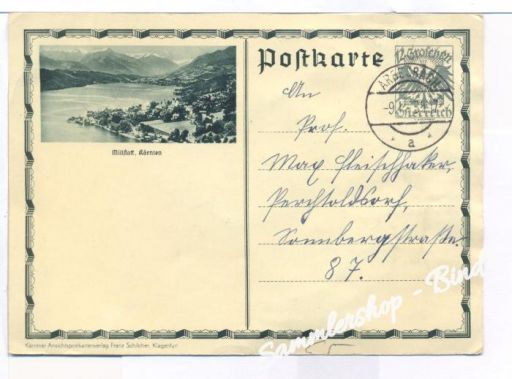 Postkarte
12 Groschen
Österreich
a
Millstatt, Kärnten
An
Prof.
Max Fleischhaker,
Perchtoldsdorf,
Sonnbergstraße
87.
Kärntner Ansichtspostkartenverlag Franz Schilcher, Klagenfurt
Sammlershop - Bind